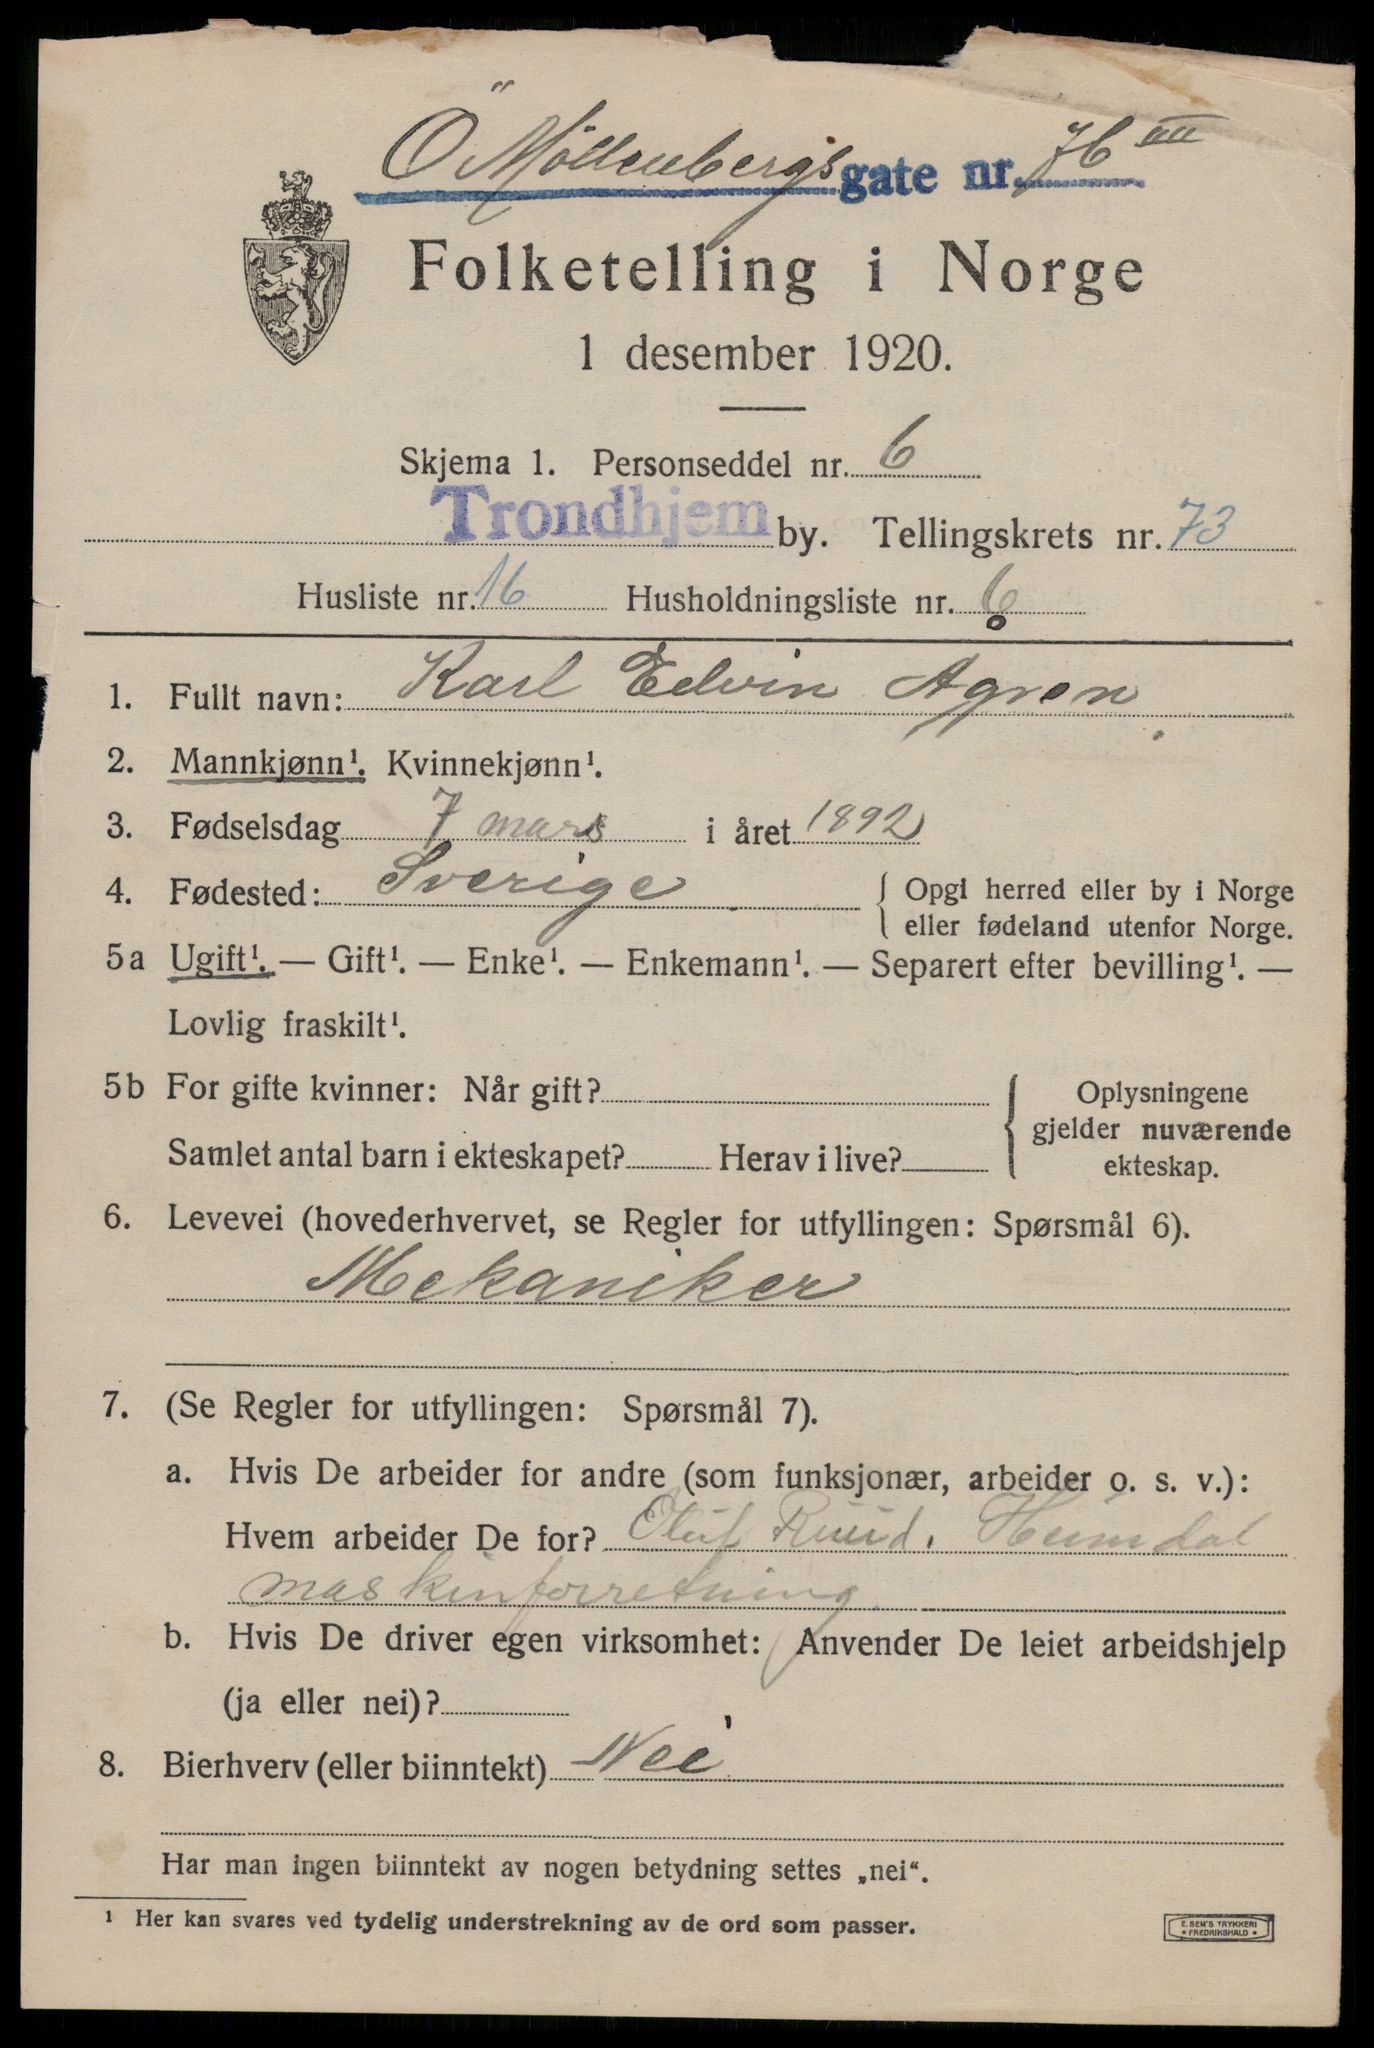 Ö Möllenbergs gate nr. 76 III
Folketelling i Norge
1 desember 1920.
Skjema 1. Personseddel nr. 6
Trondhjem by. Tellingskrets nr. 73
Husliste nr. 16 Husholdningsliste nr. 6
1. Fullt navn: Karl Edvin Agren
2. Mannkjønn¹. Kvinnekjønn¹.
3. Fødselsdag 7 mars i året 1892
4. Fødested: Sverige { Opgi herred eller by i Norge
eller fødeland utenfor Norge.
5a Ugift¹. — Gift¹. — Enke¹. — Enkemann¹. — Separert efter bevilling¹. —
Lovlig fraskilt¹.
5b For gifte kvinner: Når gift? { Oplysningene
gjelder nuværende
Samlet antal barn i ekteskapet? Herav i live? ekteskap.
6. Levevei (hovederhvervet, se Regler for utfyllingen: Spørsmål 6).
Mekaniker
7. (Se Regler for utfyllingen: Spørsmål 7).
a. Hvis De arbeider for andre (som funksjonær, arbeider o. s. v.):
Hvem arbeider De for? Oluf Ruud. Heimdal
maskinforretning
b. Hvis De driver egen virksomhet: Anvender De leiet arbeidshjelp
(ja eller nei)?
8. Bierhverv (eller biinntekt) Nei
Har man ingen biinntekt av nogen betydning settes „nei“.
¹ Her kan svares ved tydelig understrekning av de ord som passer.
E. SEM'S TRYKKERI
* FREDRIKSHALD *